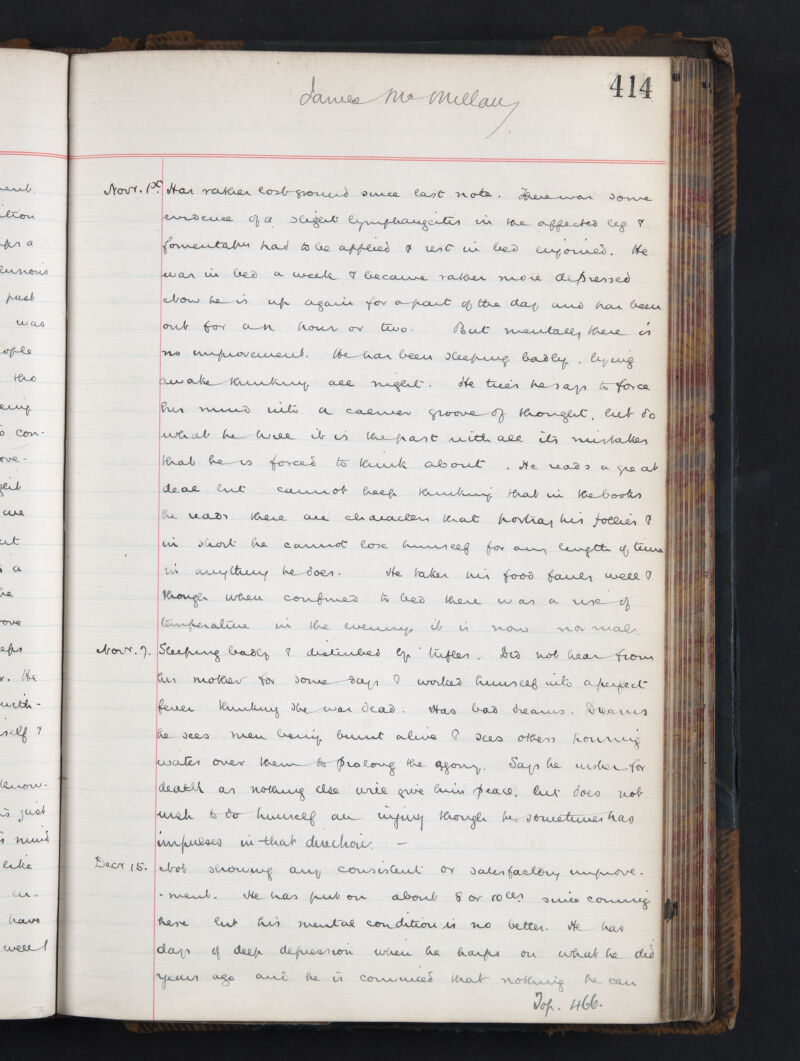 414
James McMillan
Novr. 1st. Has rather lost ground since last note. There was some
evidence of a slight lymphangeitis in the affected leg &
fomentatns had to be applied & rest in bed enjoined. He
was in bed a week & became rather more depressed
Now he is up again for a part of the day and has been
out for an hour or two. But mentally there is
no improvement. He has been sleeping badly, lying
awake thinking all night. He tries he says to force
his mind into a calmer groove of thought, but do
what he will it is the past with all its mistakes
that he is forced to think about. He reads a great
deal but cannot keep thinking that in the books
he reads there are characters that portray his follies &
in short he cannot lose himself for any length of time
in anything he does. He takes his food fairly well &
though when confined to bed there was a rise of
temperature in the evenings it is now normal.
Novr. 7. Sleeping badly & disturbed by trifles. Did not hear from
his mother for some days & worked himself into a perfect
fever thinking she was dead. Has bad dreams. Dreams
he sees men being burnt alive & sees others pouring
water over them to prolong the agony. Says he wishes for
death as nothing else will give him peace, but does not
wish to do himself an injury though he sometimes has
impulses in that direction. -
Decr 15. Not showing any consistent or satisfactory improve-
-ment. He has put on about 8 or 10 lbs since coming
here but his mental condition is no better. He has
days of deep depression when he harps on what he did
years ago and he is convinced that nothing he can
To p. 466.
ition
past
was
ople
con-
ove-
a
ove
He
with-
self &
know-
is just
mind
like
have
well